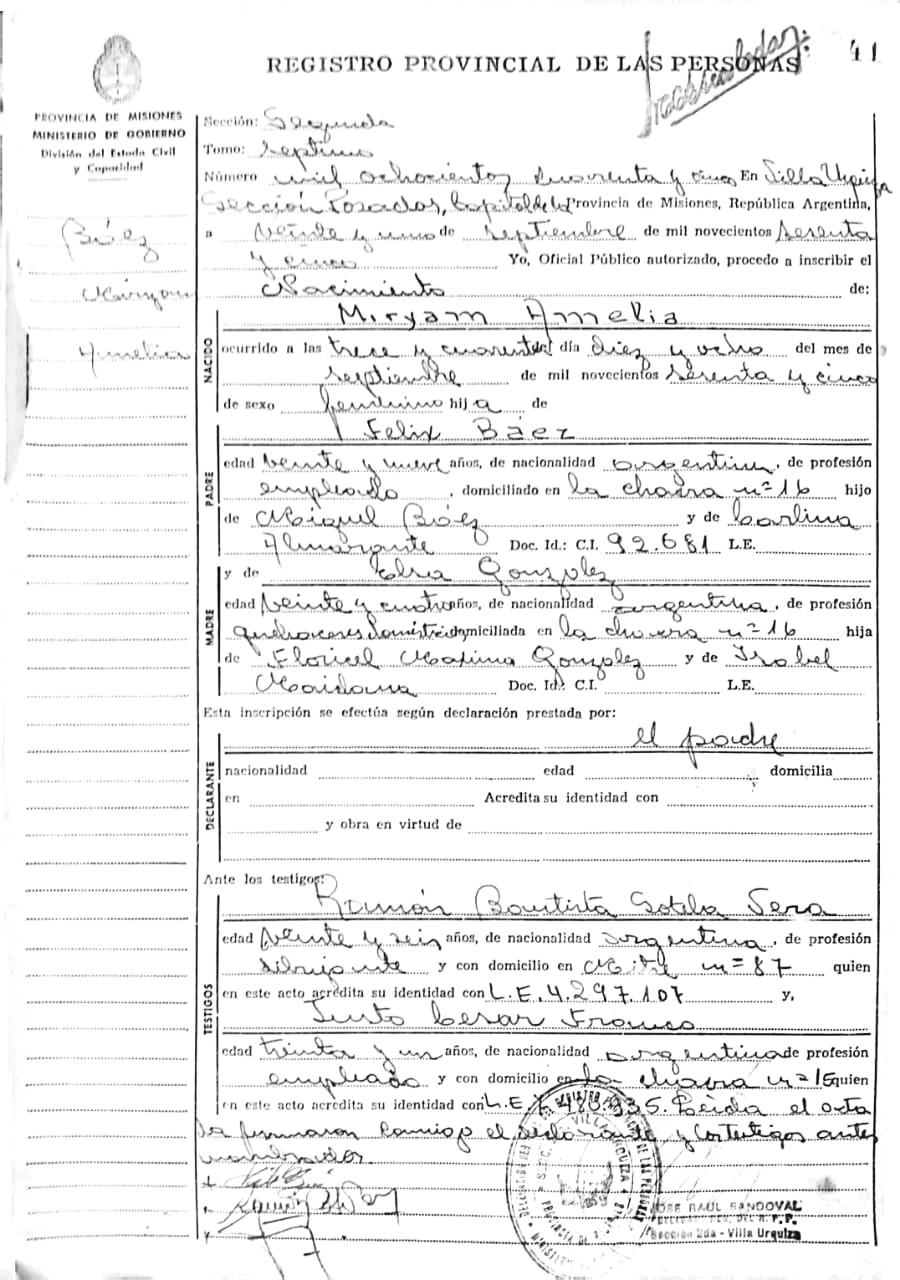 REGISTRO PROVINCIAL DE LAS PERSONAS
41
PROVINCIA DE MISIONES
MINISTERIO DE GOBIERNO
División del Estado Civil
y Capacidad
Báez
Miryam
Amelia
Sección: Segunda
Tomo: Septimo
Número mil ochocientos cuarenta y cinco En Villa Urquiza
Sección Posadas, Capital de la Provincia de Misiones, República Argentina,
a veinte y uno de septiembre de mil novecientos sesenta
y cinco Yo, Oficial Público autorizado, procedo a inscribir el
Nacimiento de:
NACIDO
Miryam Amelia
ocurrido a las trece y cuarenta del día diez y ocho del mes de
septiembre de mil novecientos sesenta y cinco
de sexo femenino hija de
PADRE
Felix Báez
edad veinte y nueve años, de nacionalidad argentina, de profesión
empleado, domiciliado en la chacra nº 16 hijo
de Miguel Báez y de Carlina
Almarante Doc. Id.: C.I. 92.681 L.E.
MADRE
y de Elsa Gonzalez
edad veinte y cuatro años, de nacionalidad argentina, de profesión
quehaceres domésticos domiciliada en la chacra nº 16 hija
de Maxima Gonzalez y de Isabel
Maidana Doc. Id.: C.I. L.E.
Esta inscripción se efectúa según declaración prestada por:
DECLARANTE
el padre
nacionalidad edad domicilia
en Acredita su identidad con
y obra en virtud de
Ante los testigos:
TESTIGOS
Ramón Bautista Sotelo Vera
edad veinte y seis años, de nacionalidad argentina, de profesión
dibujante y con domicilio en Mitre nº 87 quien
en este acto acredita su identidad con L.E. 4.297.107 y,
Justo Cesar Franco
edad treinta y un años, de nacionalidad argentina de profesión
empleado y con domicilio en la chacra nº 15 quien
en este acto acredita su identidad con L.E. Leída el acta
la firmaron conmigo el declarante y los testigos antes
nombrados.
JOSE RAUL SANDOVAL
Sección 2da - Villa Urquiza